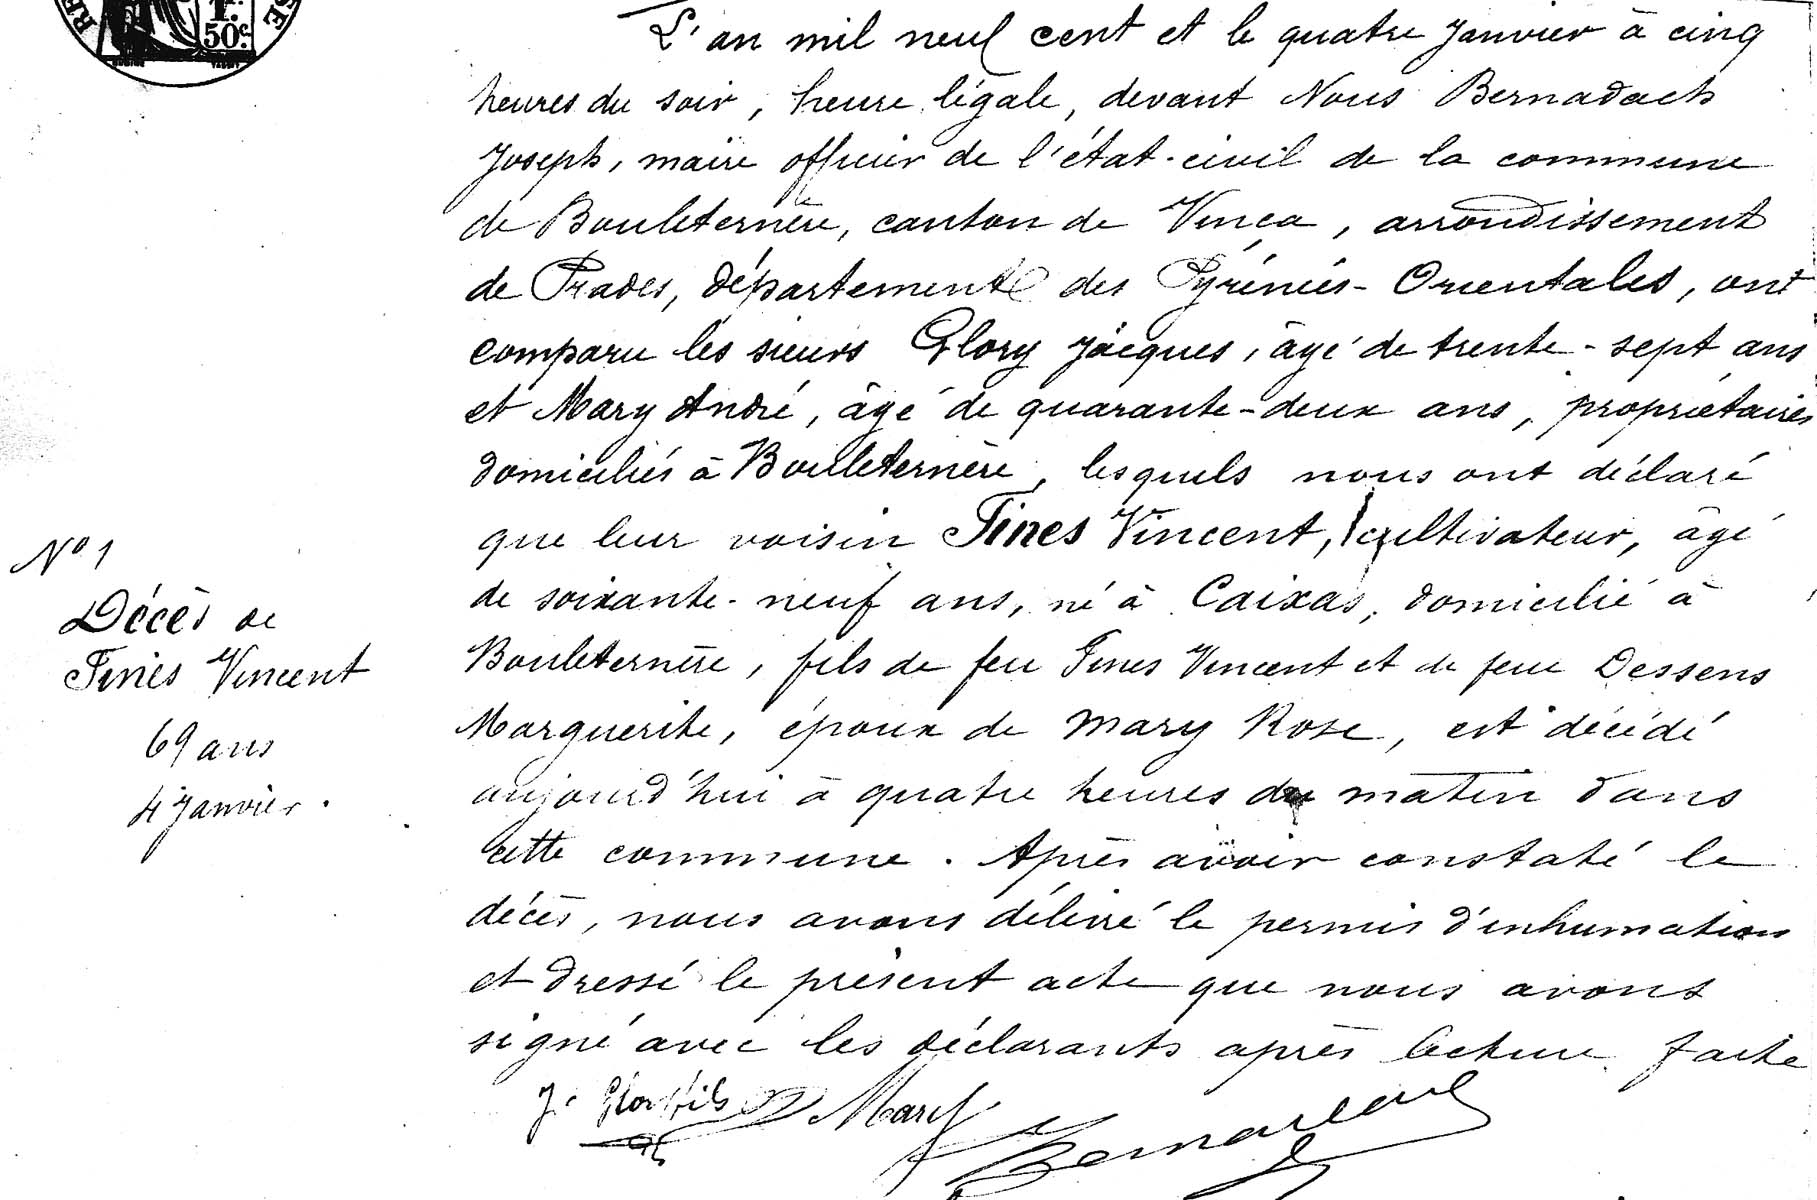 RE
1F.
50c.
SE
L'an mil neuf cent et le quatre Janvier à cinq
heures du soir, heure légale, devant Nous Bernadach
Joseph, maire officier de l'état-civil de la commune
de Bouleternère, canton de Vinça, arrondissement
de Prades, département des Pyrénées-Orientales, ont
comparu les sieurs Glory Jacques, âgé de trente-sept ans
et Mary André, âgé de quarante-deux ans, propriétaires
domiciliés à Bouleternère, lesquels nous ont déclaré
que leur voisin Fines Vincent, cultivateur, âgé
de soixante-neuf ans, né à Caixas, domicilié à
Bouleternère, fils de feu Fines Vincent et de feue Dessens
Marguerite, époux de Mary Rose, est décédé
aujourd'hui à quatre heures du matin dans
cette commune. Après avoir constaté le
décès, nous avons délivré le permis d'inhumation
et dressé le présent acte que nous avons
signé avec les déclarants après lecture faite
Nº 1
Décès de
Fines Vincent
69 ans
4 Janvier.
J. Glory fils Mary Bernadach